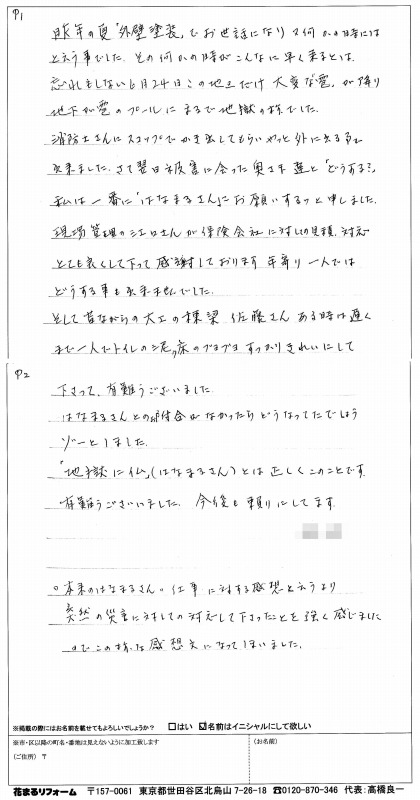 P1
昨年の夏「外壁塗装」でお世話になり又何かの時には
と云う事でした。その何かの時がこんなに早く来るとは
忘れもしない6月24日この地区だけ大変な雹が降り
地下が雹のプールにまるで地獄の様でした。
消防士さんにスコップでかき出してもらいやっと外に出る事
出来ました。さて翌日被害に会った奥さま達と「どうする?」
私は一番に「はなまるさん」にお願いするっと申しました。
現場管理のシエロさんが保険会社に対しての見積、対応
とても良くして下って感謝しております 年寄り一人では
どうする事も出来ませんでした。
そして昔ながらの大工の棟梁 佐藤さん ある時は遅く
まで一人でトイレの泥、床のブヨブヨすっかりきれいにして
P2
下さって、有難うございました
はなまるさんとの付合がなかったらどうなってたでしょう
ゾーとしました。
「地獄に仏」(はなまるさん)とは正しくこのことです
有難うございました。今後も頼りにしてます
○本来のはなまるさんの仕事に対する感想と云うより
突然の災害に対しての対応して下さったことを強く感じました
のでこの様な感想文になってしまいました。
※掲載の際にはお名前を載せてもよろしいでしょうか? □はい ☑名前はイニシャルにして欲しい
※市・区以降の町名・番地は見えないように加工致します
(ご住所) 〒
(お名前)
花まるリフォーム 〒157-0061 東京都世田谷区北烏山 7-26-18 ☎0120-870-346 代表:高橋良一